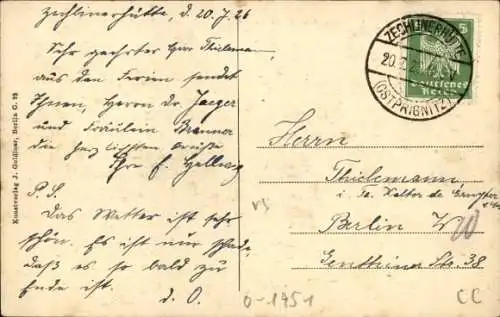 Zechlinerhütte, d. 20.7.26
Sehr geehrter Herr Thielemann,
aus den Ferien sendet
Ihnen, Herrn Dr. Jaeger
und Fräulein
die herzlichsten Grüße
Ihr E. Hellwig
P. S.
Das Wetter ist sehr
schön. Es ist nur schade,
daß es so bald zu
Ende ist.
d. O.
Kunstverlag J. Goldiner, Berlin C. 25
ZECHLINERHÜTTE
20.7.26
(OSTPRIGNITZ)
5
Deutsches
Reich
Herrn
Thielemann
i. Fa. Kalter de
Berlin W 10
Genthiner Str. 38
0-1451
CC